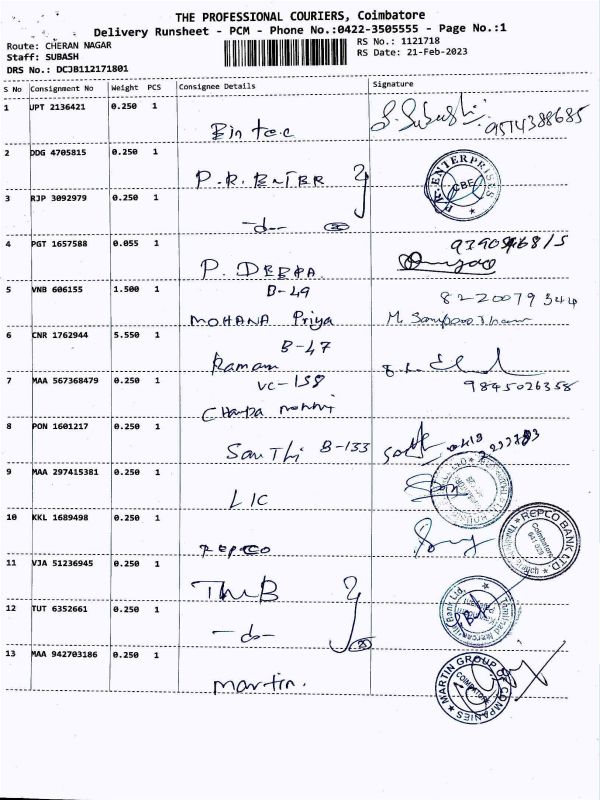 THE PROFESSIONAL COURIERS, Coimbatore
Delivery Runsheet - PCM - Phone No.:0422-3505555 - Page No.:1
Route: CHERAN NAGAR
Staff: SUBASH
DRS No.: DCJB112171801
RS No.: 1121718
RS Date: 21-Feb-2023
S No Consignment No Weight PCS Consignee Details Signature
1 JPT 2136421 0.250 1
Bintec
2 DDG 4705815 0.250 1
P.R. ENTER
3 RJP 3092979 0.250 1
-do- 2
P.R. ENTERPRISES
CBE
4 PGT 1657588 0.055 1
P. DEEPA
5 VNB 606155 1.500 1
B-49
MOHANA Priya
8220079344
6 CNR 1762944 5.550 1
B-47
Ramani
7 MAA 567368479 0.250 1
VC-158
9845026358
8 PON 1601217 0.250 1
SanThi B-133
9 MAA 297415381 0.250 1
LIC
10 KKL 1689498 0.250 1
repco
REPCO BANK LTD.
Coimbatore
11 VJA 51236945 0.250 1
TMB
12 TUT 6352661 0.250 1
-do- 2
Tamilnad Mercantile Bank Ltd.
13 MAA 942703186 0.250 1
martin.
MARTIN GROUP OF COMPANIES
COIMBATORE